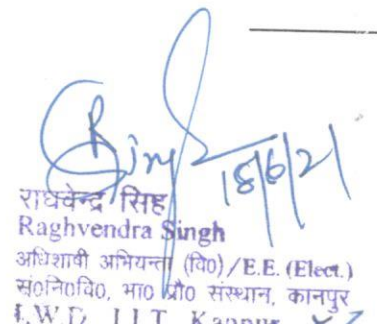 RSingh
18/6/21
राघवेन्द्र सिंह
Raghvendra Singh
अधिशाषी अभियन्ता (वि०)/E.E. (Elect.)
सं०नि०वि०, भा० प्रौ० संस्थान, कानपुर
I.W.D. I.I.T. Kanpur